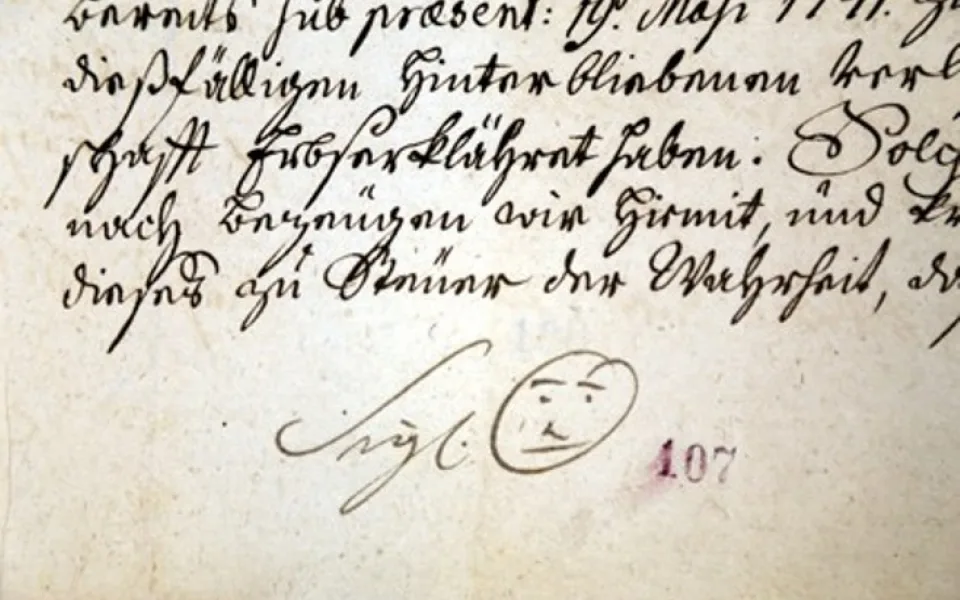 bereits sub præsent: 19. May 1741.
dießfälligen Hinterbliebenen
schafft Erbserklähret haben: Solch
nach bezeügen wir hiemit, und kr
dieses zu Steüer der Wahrheit, da
Sigl.
107